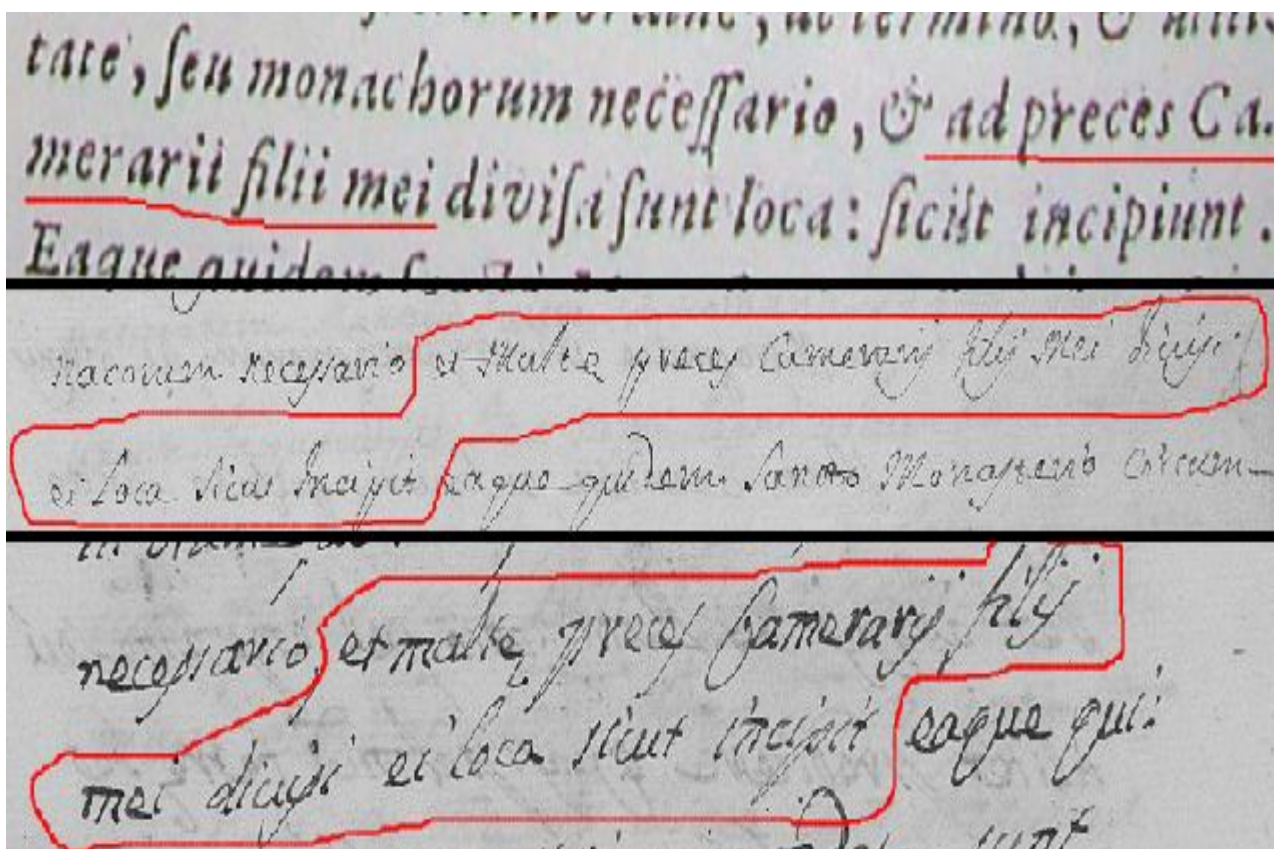 tate, ſeu monachorum neceſſario, & ad preces Ca-
merarii filii mei diviſa ſunt loca: ſicut incipiunt.
Eaque quidem
nacorum necessario et Multe preces Camerarij filij Mei dicissi
ei loca sicut Incipit eaque quidem Sancto Monasterio Circum-
necessario, et malte preces Camerarij filij
mei dicissi ei loca sicut incipit eaque qui:
sunt